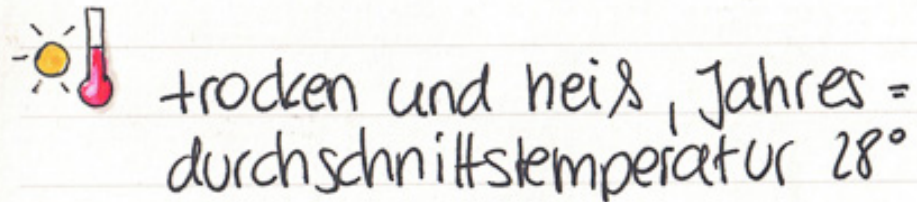 trocken und heiß, Jahres=
durchschnittstemperatur 28°